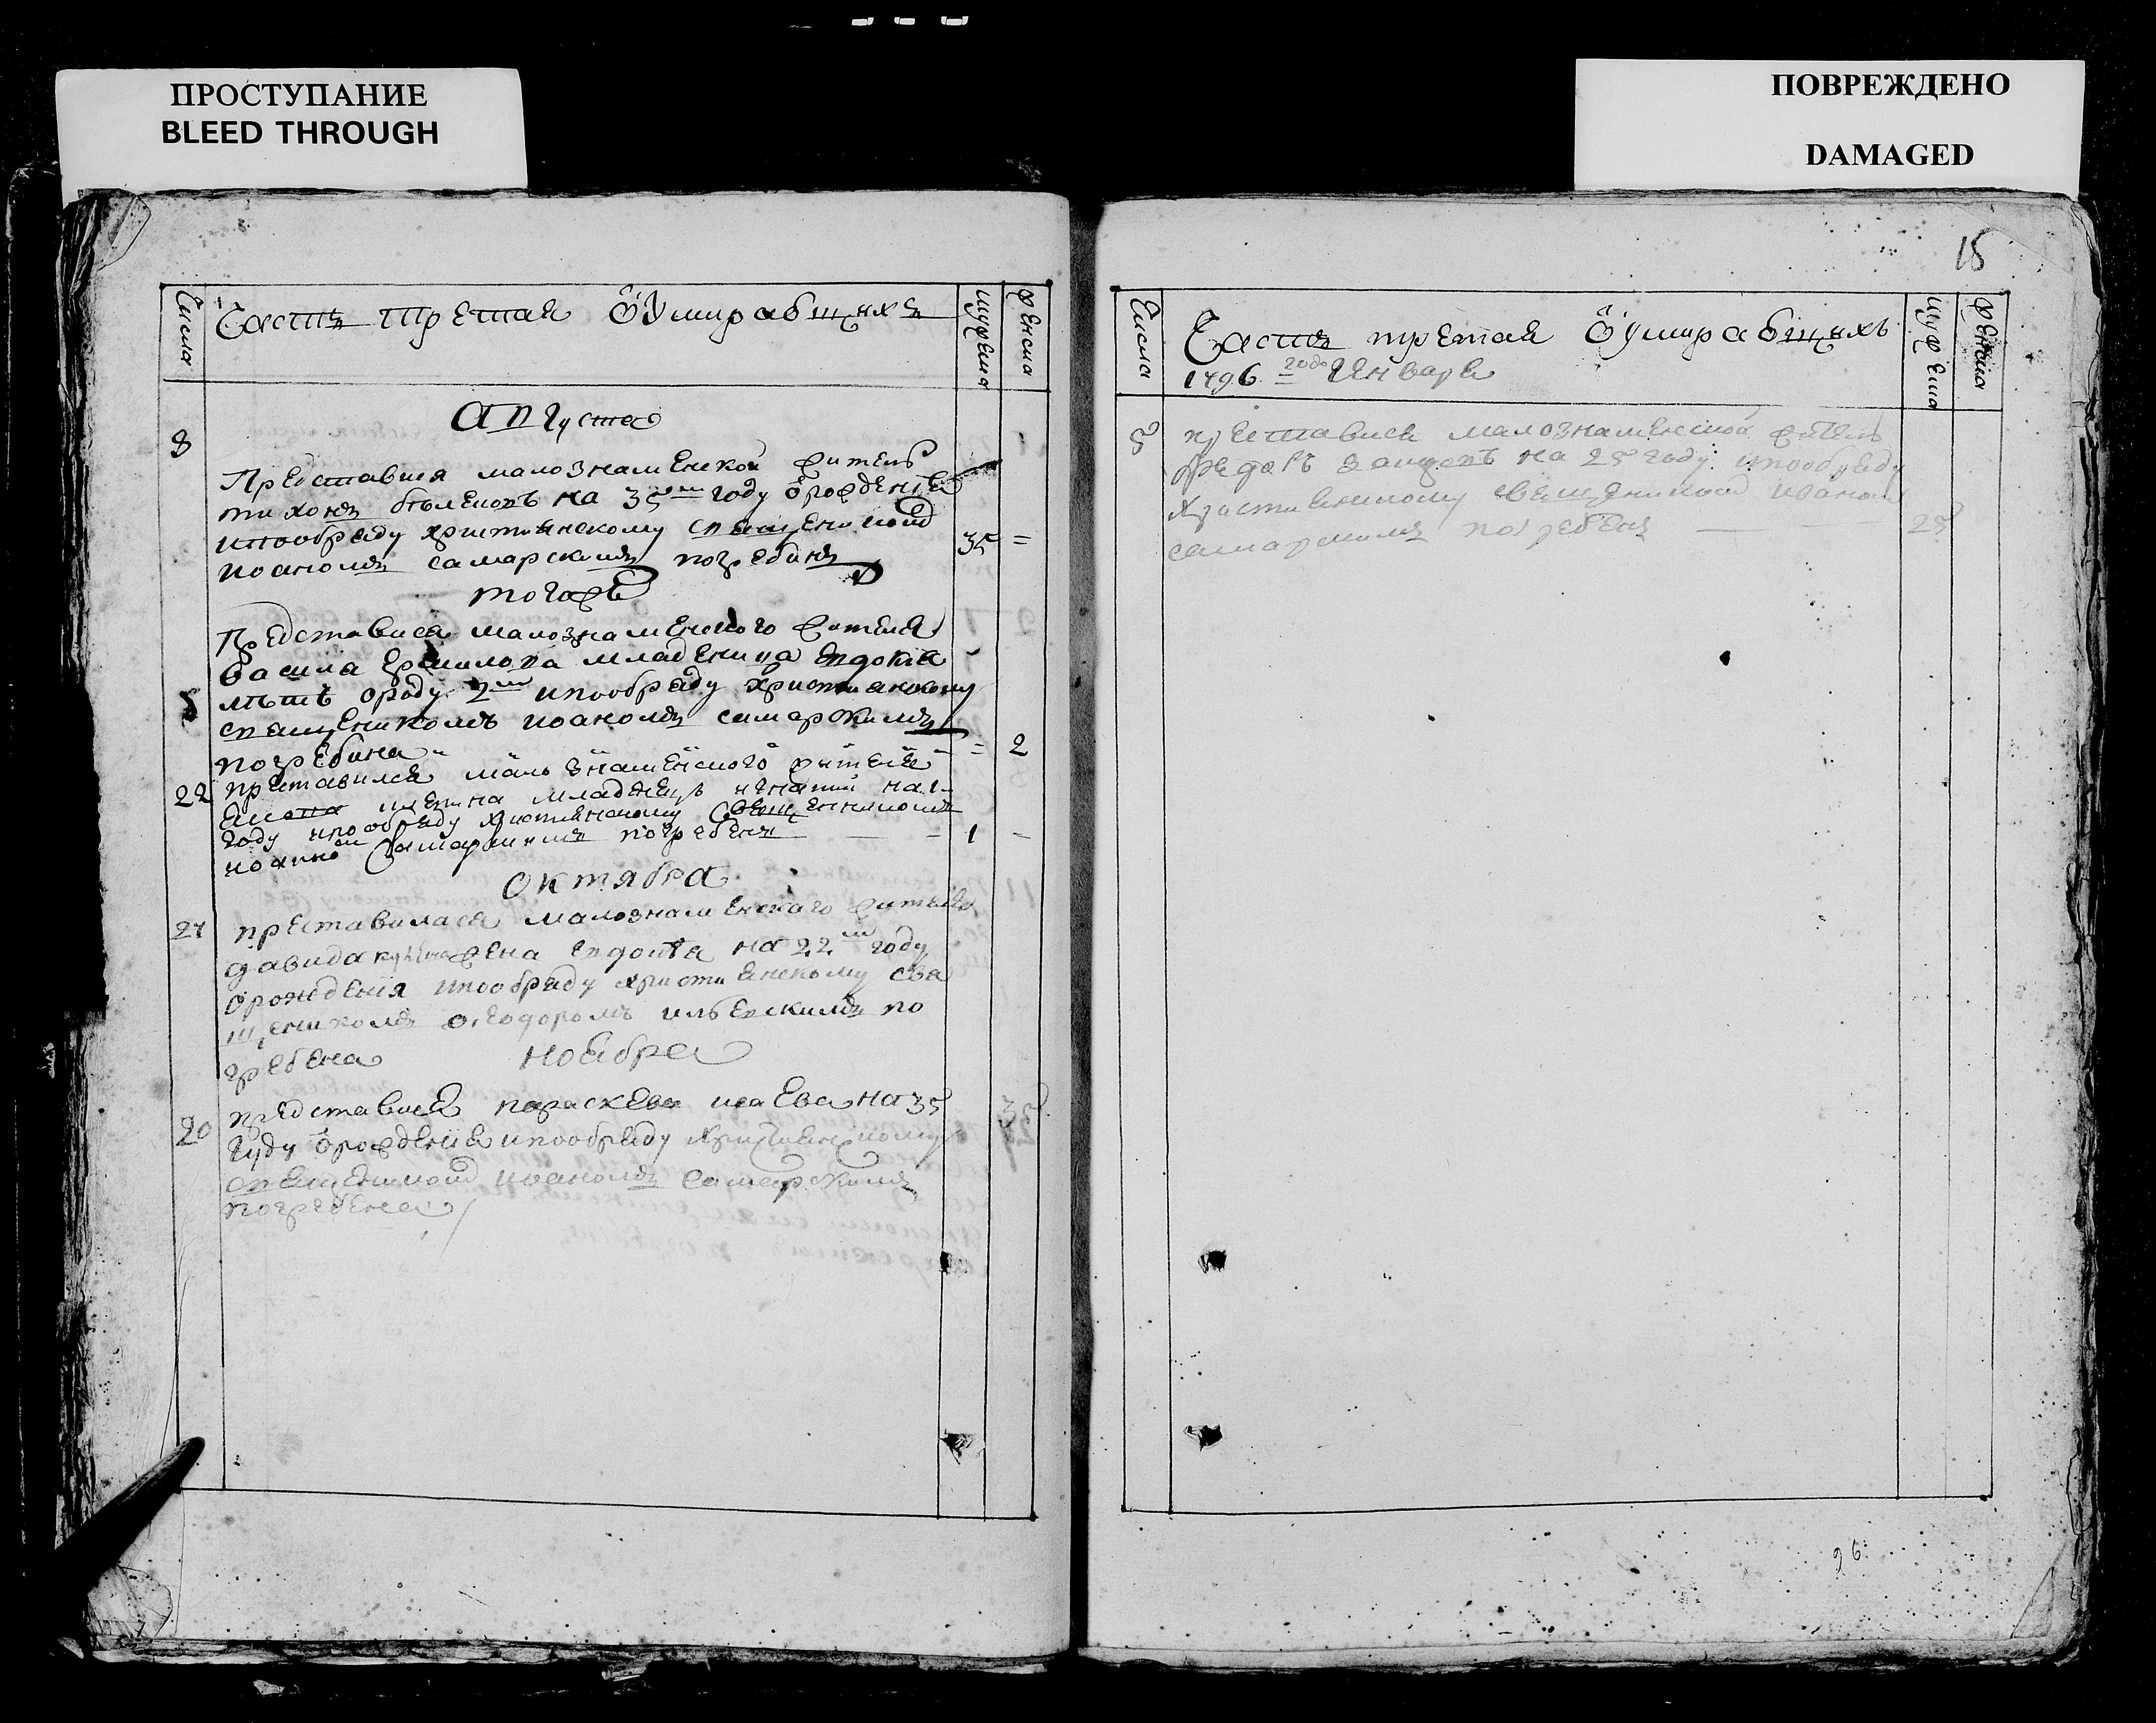 ПРОСТУПАНИЕ
BLEED THROUGH
ПОВРЕЖДЕНО
DAMAGED
15
Числа
Часть третая о умирающихъ
мужеска
женска
августа
8
Представися малознаменской житель
тихонъ на 35 году ѿ рождения
и по обряду християнскому священникомъ
иоаномъ самарскимъ погребенъ
35 =
тогожъ
Представися малознаменского жителя
васила ермилова младеница евдокия
8
2 и по обряду християнскому
священикомъ иоаномъ самарскимъ
погребена = 2
22
преставился малознаменского жителя
младенецъ игнатий на 1
году и по обряду християнскому священникомъ
иоанномъ Самарскимъ погребенъ — — 1 —
октября
27
преставилася малознаменского жителя
давида жена евдокия на 22 году
ѿ рождения и по обряду християнскому свя
щеникомъ ѳеодоромъ ильевскимъ по
гребена
ноября
20
представися параскева исаева на 35
году ѿ рождения и по обряду християнскому
священикомъ иоаномъ самарскимъ
погребена
35
Числа
Часть третая о умирающихъ
1796 года Января
мужеска
женска
5
преставися малознаменской житель
на 25 году и по обряду
християнскому священикомъ иваномъ
самарскимъ погребенъ — — 25
96